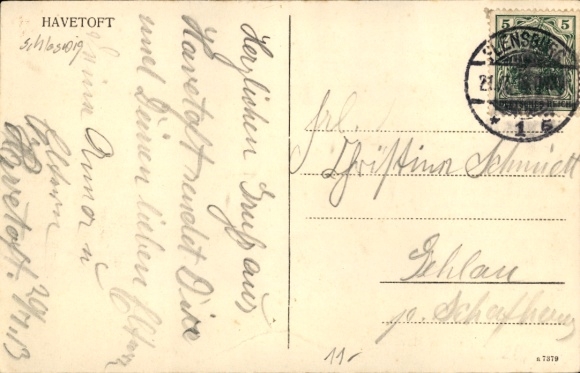 HAVETOFT
Schleswig
Herzlichen Gruß aus
Havetoft sendet Dir
und Deinen lieben Eltern
Anna u
Eltern
Havetoft.
5 5
FLENSBURG
21.
* 1 5
Frl.
Christina Schmidt
Gehlau
p. Schafhaus
11.-
n 7379